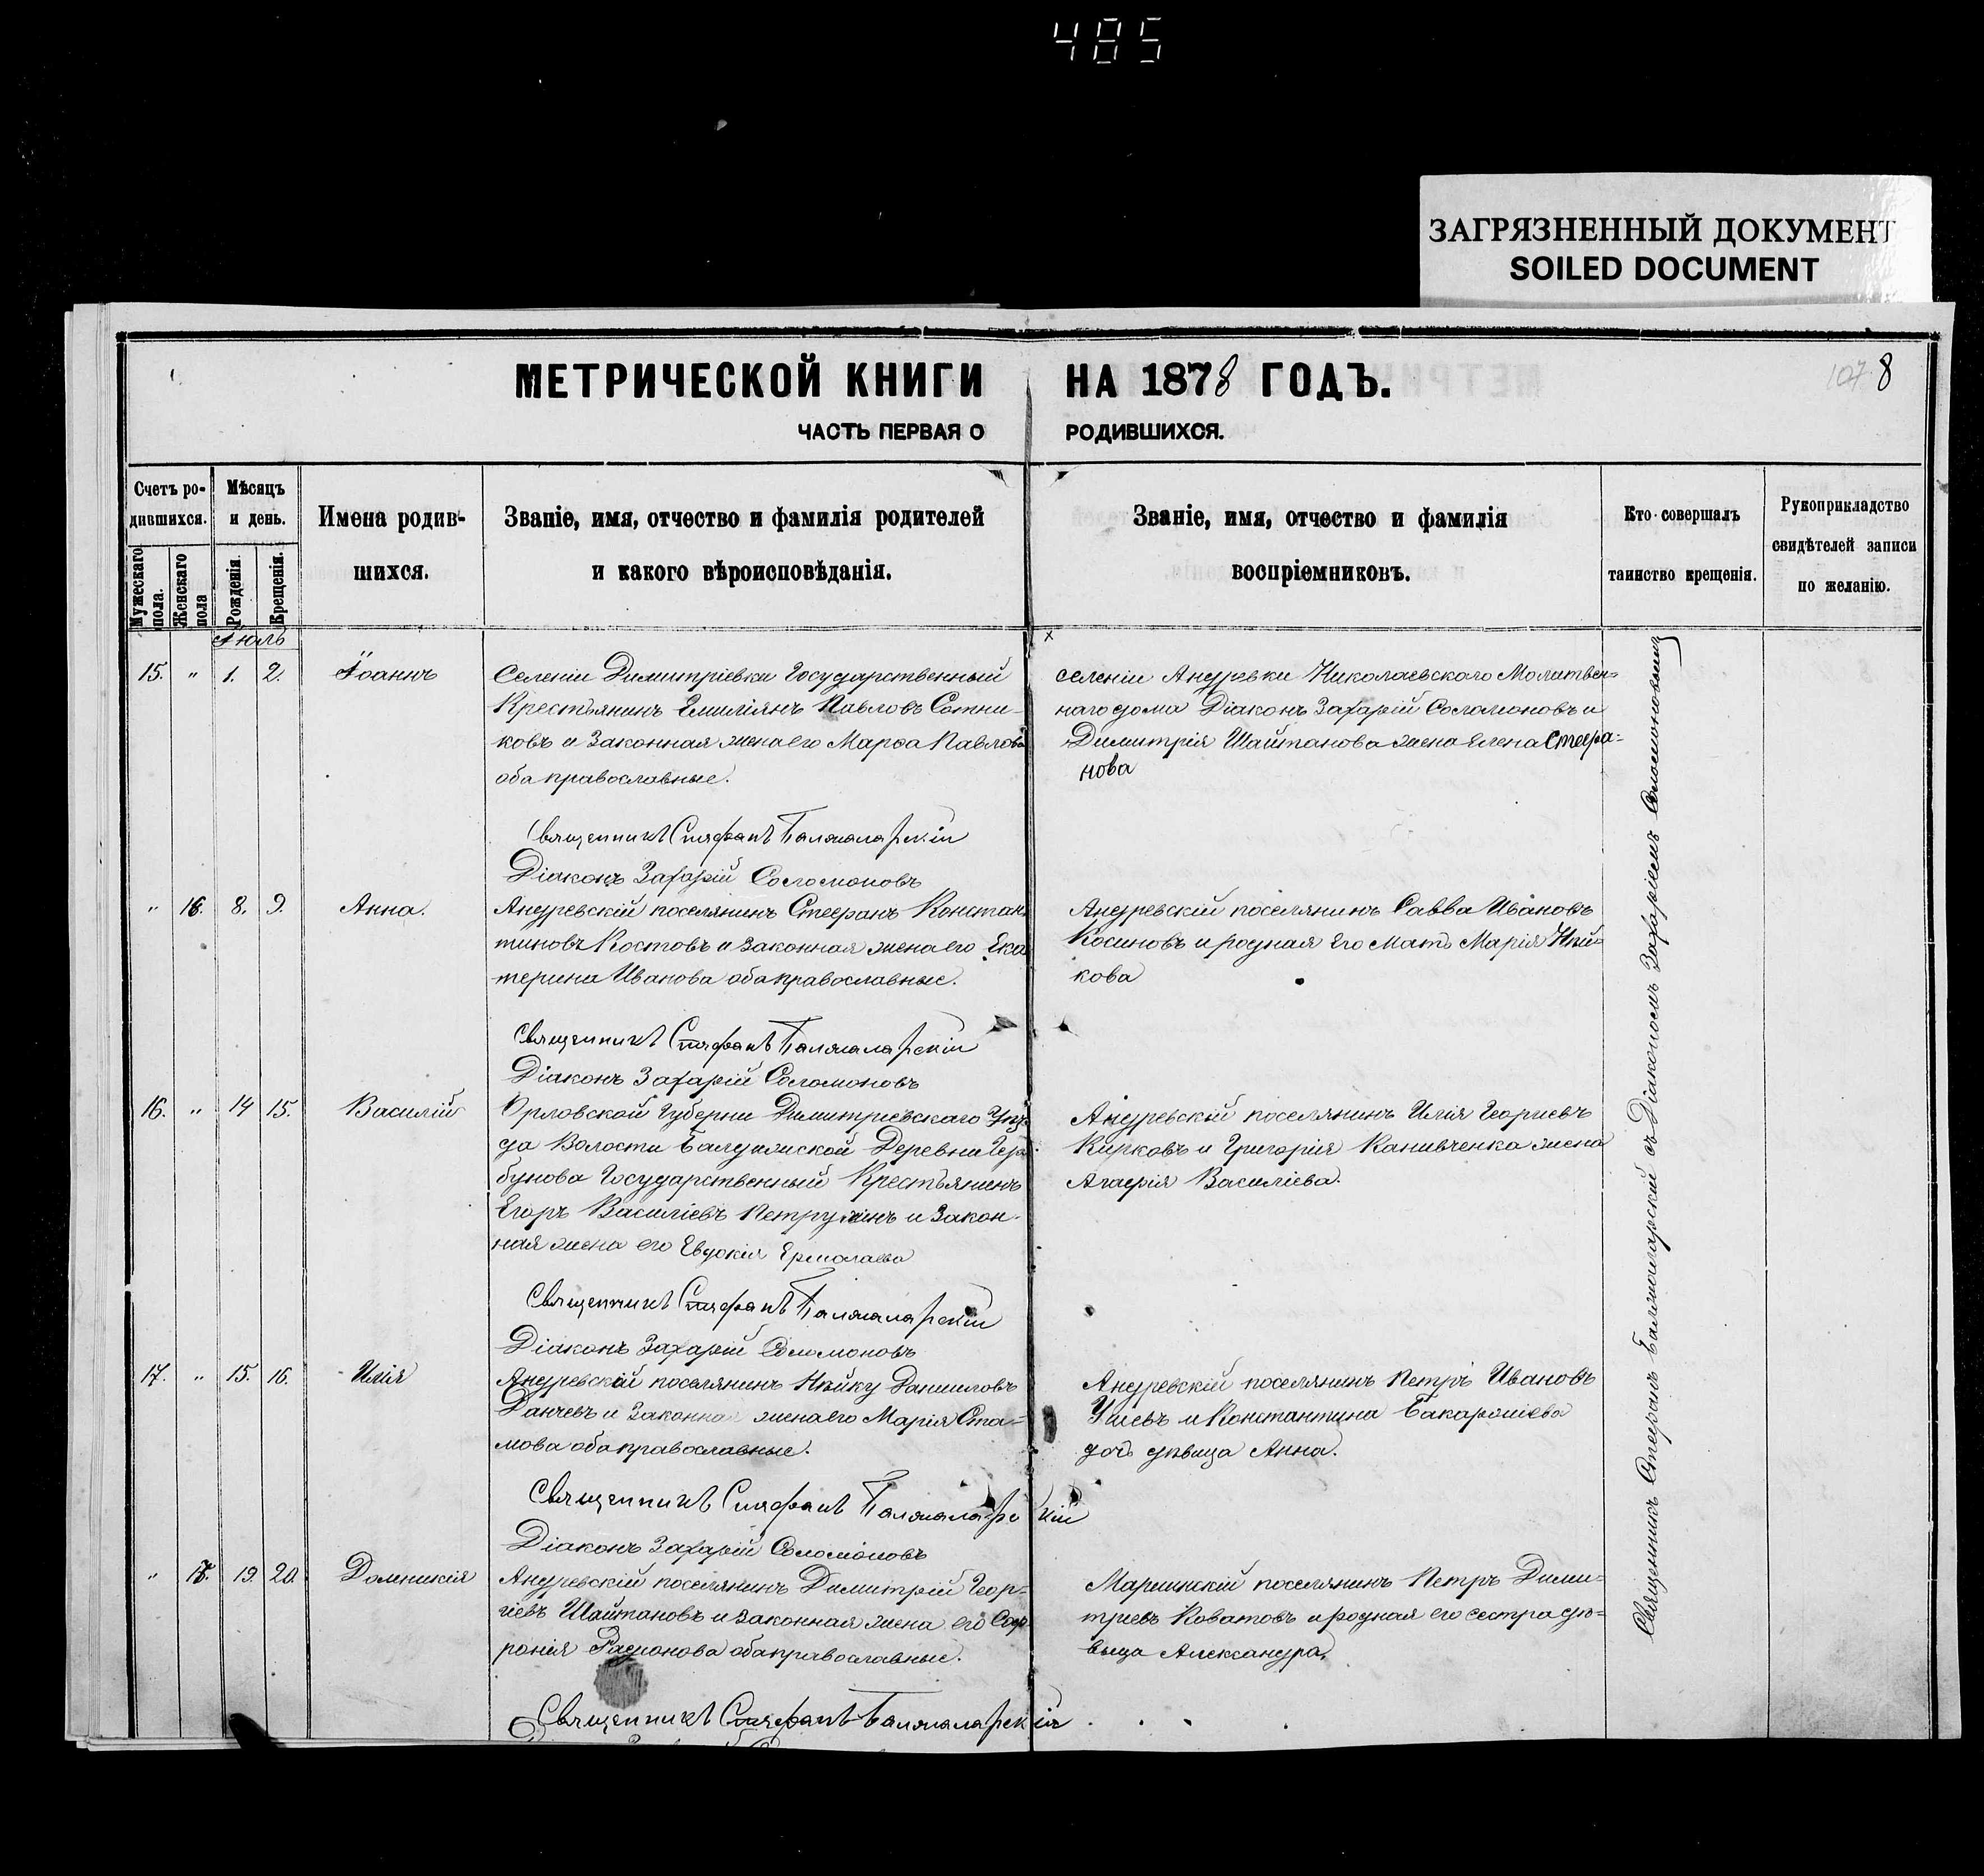 485
ЗАГРЯЗНЕННЫЙ ДОКУМЕНТ
SOILED DOCUMENT
МЕТРИЧЕСКОЙ КНИГИ НА 1878 ГОДЪ.
107 8
ЧАСТЬ ПЕРВАЯ О РОДИВШИХСЯ.
Счетъ ро-
дившихся.
Мужескаго пола.
Женскаго пола
Мѣсяцъ
и день.
Рожденія.
Крещенія.
Имена родив-
шихся.
Званіе, имя, отчество и фамилія родителей
и какого вѣроисповѣданія.
Званіе, имя, отчество и фамилія
воспріемниковъ.
Кто совершалъ
таинство крещенія.
Рукоприкладство
свидѣтелей записи
по желанію.
Іюль
15. " 1. 2. Іоаннъ
Селеніи Димитріевки Государственный
Крестьянинъ Емиліянъ Павловъ Сотни-
ковъ и Законная жена его Марѳа Павлова
оба православные.
Священникъ Стефанъ Балжаларскій
Діаконъ Захарій Соломоновъ
селеніи Андревки Николаевского Молитвен-
наго дома Діаконъ Захарій Соломоновъ и
Димитрія Шайтанова жена Елена Стефа-
нова
" 16. 8. 9. Анна.
Андревскій поселянинъ Стефанъ Констан
тиновъ Костовъ и Законная жена его Ека
терина Иванова оба православные.
Священникъ Стефанъ Балжаларскій
Діаконъ Захарій Соломоновъ
Андревскій поселянинъ Савва Ивановъ
Косиновъ и родная его мать Марія
кова
16. " 14 15. Василій
Орловской Губерни Димитріевскаго Уѣз
да Волости Деревни
бунова Государственный Крестьянинъ
Егоръ Василіевъ Петружинъ и Закон-
ная жена его Евдокія Ермолаева
Священникъ Стефанъ Балжаларскій
Діаконъ Захарій Соломоновъ
Андревскій поселянинъ Илія Георгиевъ
Кирковъ и Григорія Канивченка жена
Агафія Василіева.
17. " 15. 16. Илія
Андревскій поселянинъ Нѣйку Даниловъ
Данчевъ и Законная жена его Марія Ста-
мова оба православные.
Священникъ Стефанъ Балжаларскій
Діаконъ Захарій Соломоновъ
Андревскій поселянинъ Петръ Ивановъ
и Константина Бакаржіева
дочь дѣвица Анна.
" 17. 19. 20. Домникія
Андревскій поселянинъ Димитрій Геор-
гіевъ Шайтановъ и Законная жена его Соф
ронія Радіонова оба православные.
Священникъ Стефанъ Балжаларскій
Маринскій поселянинъ Петръ Дими-
тріевъ Коватовъ и родная его сестра дѣ-
вица Александра.
Священникъ Стефанъ Балжаларскій съ Діакономъ Захаріемъ Соломоновымъ